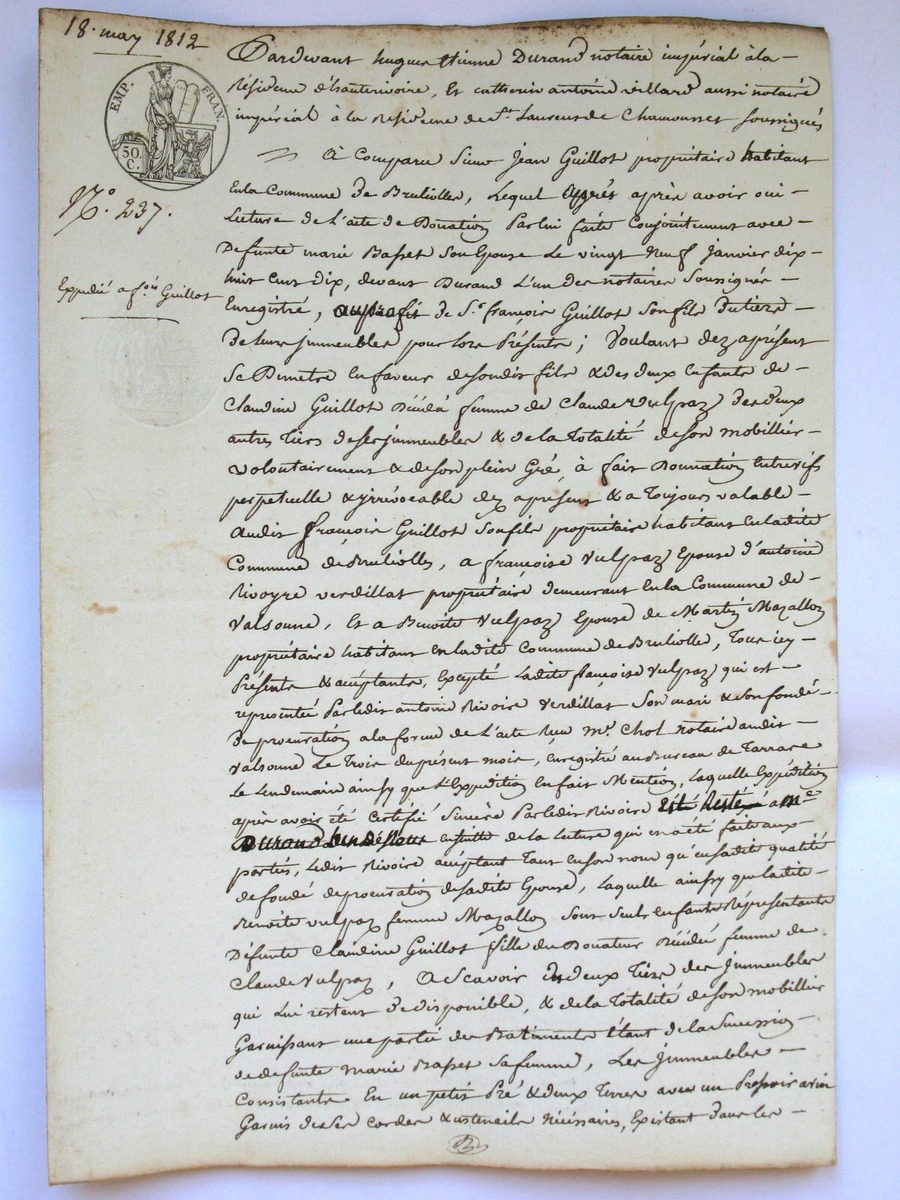 18. may 1812
EMP. FRAN.
50. C.
N.o 237.
Expedié a f.ois Guillot
Pardevant hugues Etienne Durand notaire impérial à la
Résidence d'hauterivoire, Et catherin antoine villard aussi notaire
impérial à la Résidence de St. Laurent de Chamousset soussignés
A Comparu Sieur Jean Guillot propriétaire habitant
En la Commune de Brulliolles, Lequel après avoir oui
Lecture de L'acte de Donation Par lui faite Conjointement avec
Defunte marie Basset Son Epouse Le vingt neuf Janvier dix
huit Cent Dix, devant Durand L'un Des notaires Soussignés
Enregistré, au profit de S.r françois Guillot Son fils Du tiers
De leurs jmmeubles pour lors Présents ; Voulant dez aprésent
Se Demetre En faveur de son dit fils & des deux Enfants de
Claudine Guillot Décédé femme de Claude Vulpaz Des deux
autres tiers de ses jmmeubles & de la Totalité de son mobillier
volontairement & de son plein Gré, à fait Donnation Entrevifs
perpetuelle & yrrévocable dez apresent & a Toujours valable
Audit françois Guillot Son fils propriétaire habitant En ladite
Commune de Brulliolles, a françoise Vulpaz Epouse d'antoine
Rivoyre verdillat propriétaire demeurant En la Commune de
Valsonne, Et a Benoite Vulpaz Epouse de Martin Mazallon
propriétaire habitant En ladite Commune de Brulliolle, Tous icy
Présents & acceptants, Excepté Ladite françoise Vulpaz qui est
representée Par ledit antoine Rivoire Verdillat Son mari & Son fondé
De procuration a la forme de L'acte Reçu m.e Chol notaire audit
Valsonne Le Trois du présent mois, Enregistré au Bureau de Tarrare
Le Lendemain ainsy que L'Expedition En fait Mention, Laquelle Expédition
après avoir été Certifié Sincère Par ledit Rivoire Est Restée a m.e
Durand ensuitte de la Lecture qui en a été faite aux
parties, Ledit Rivoire acceptant Tant en son nom qu'en sadite qualité
de fondé de procuration de sadite Epouse, Laquelle ainsy que ladite
Benoite vulpaz femme Mazallon Sont Seuls enfants Réprésentants
Défunte Claudine Guillot fille du Donateur Décédée femme de
Claude Vulpaz, A Scavoir des deux Tiers des Jmmeubles
qui Lui restent De disponible, & de la Totalité de son mobillier
Garnissant une partie des Batiments Etant de la Succession
de defunte Marie Basset Sa femme, Les Jmmeubles
Consistants En un petit Pré & deux Terres avec un Pressoir a vin
Garnis de ses cordes & ustencils nécéssaires, Existant dans les